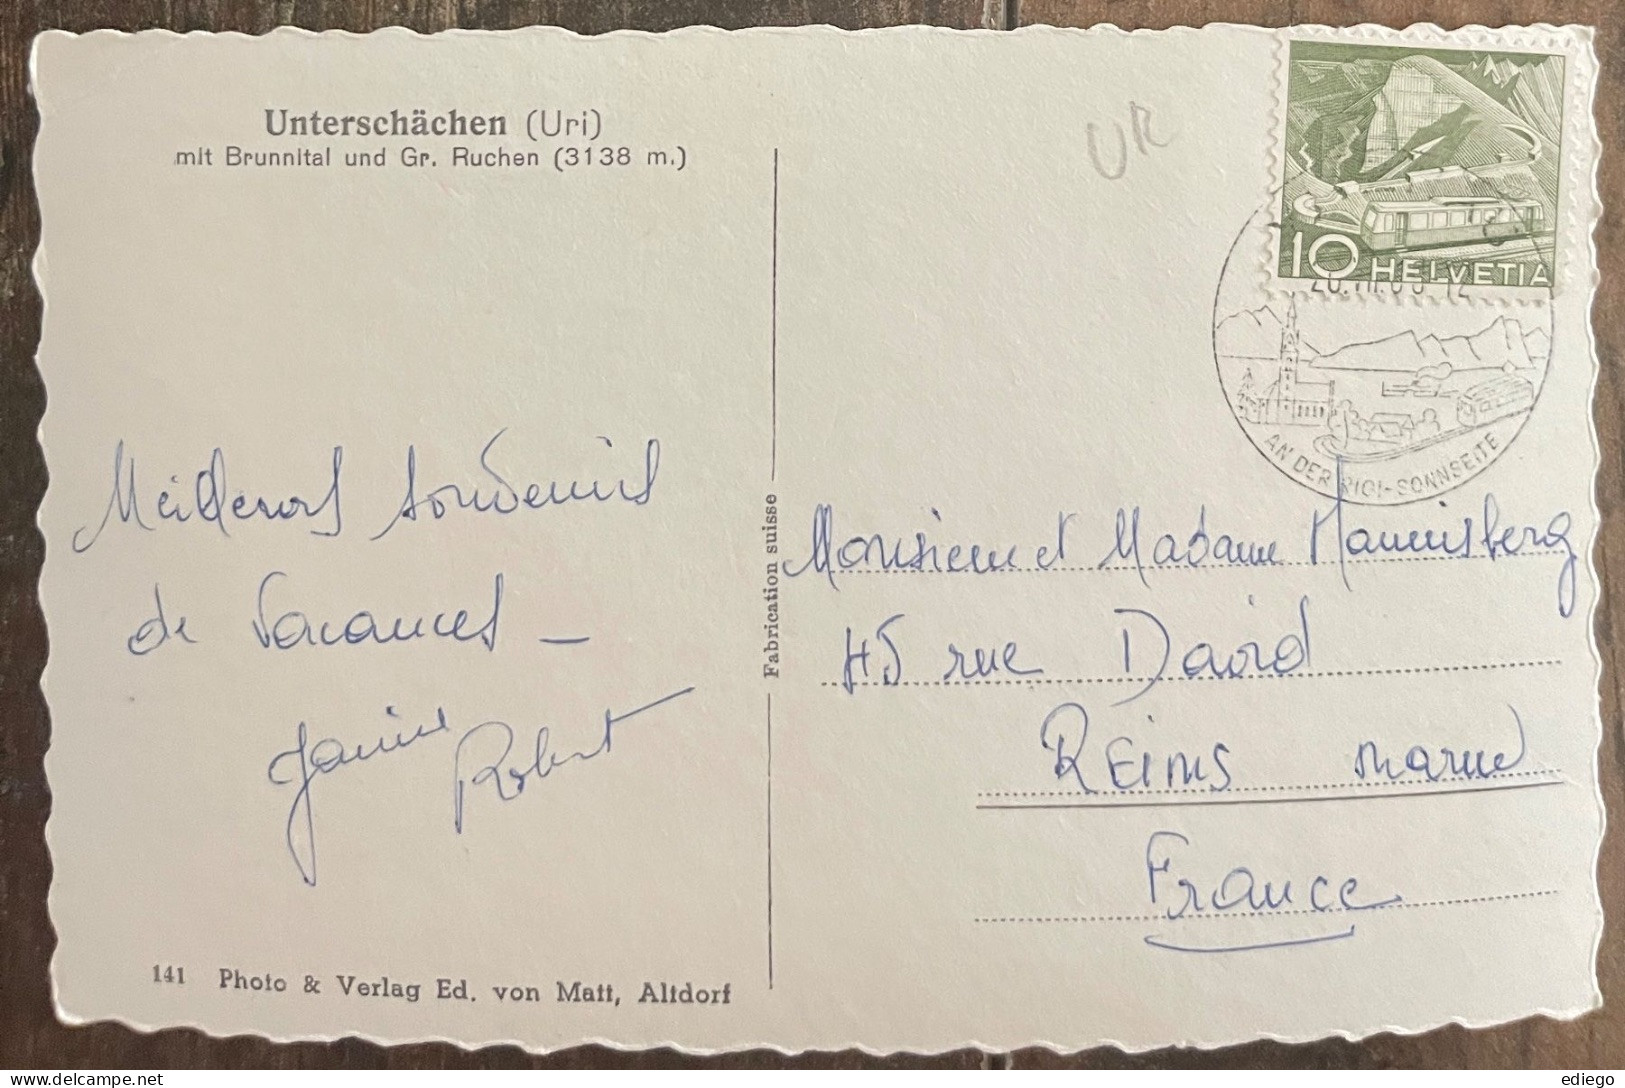 Unterschächen (Uri)
mit Brunnital und Gr. Ruchen (3138 m.)
UR
10 HELVETIA
AN DER RIGI-SONNSEITE
Meilleurs souvenirs
de vacances –
Janine
Robert
Fabrication suisse
Monsieur et Madame
45 rue David
REIMS Marne
France
141 Photo & Verlag Ed. von Matt, Altdorf
ediego